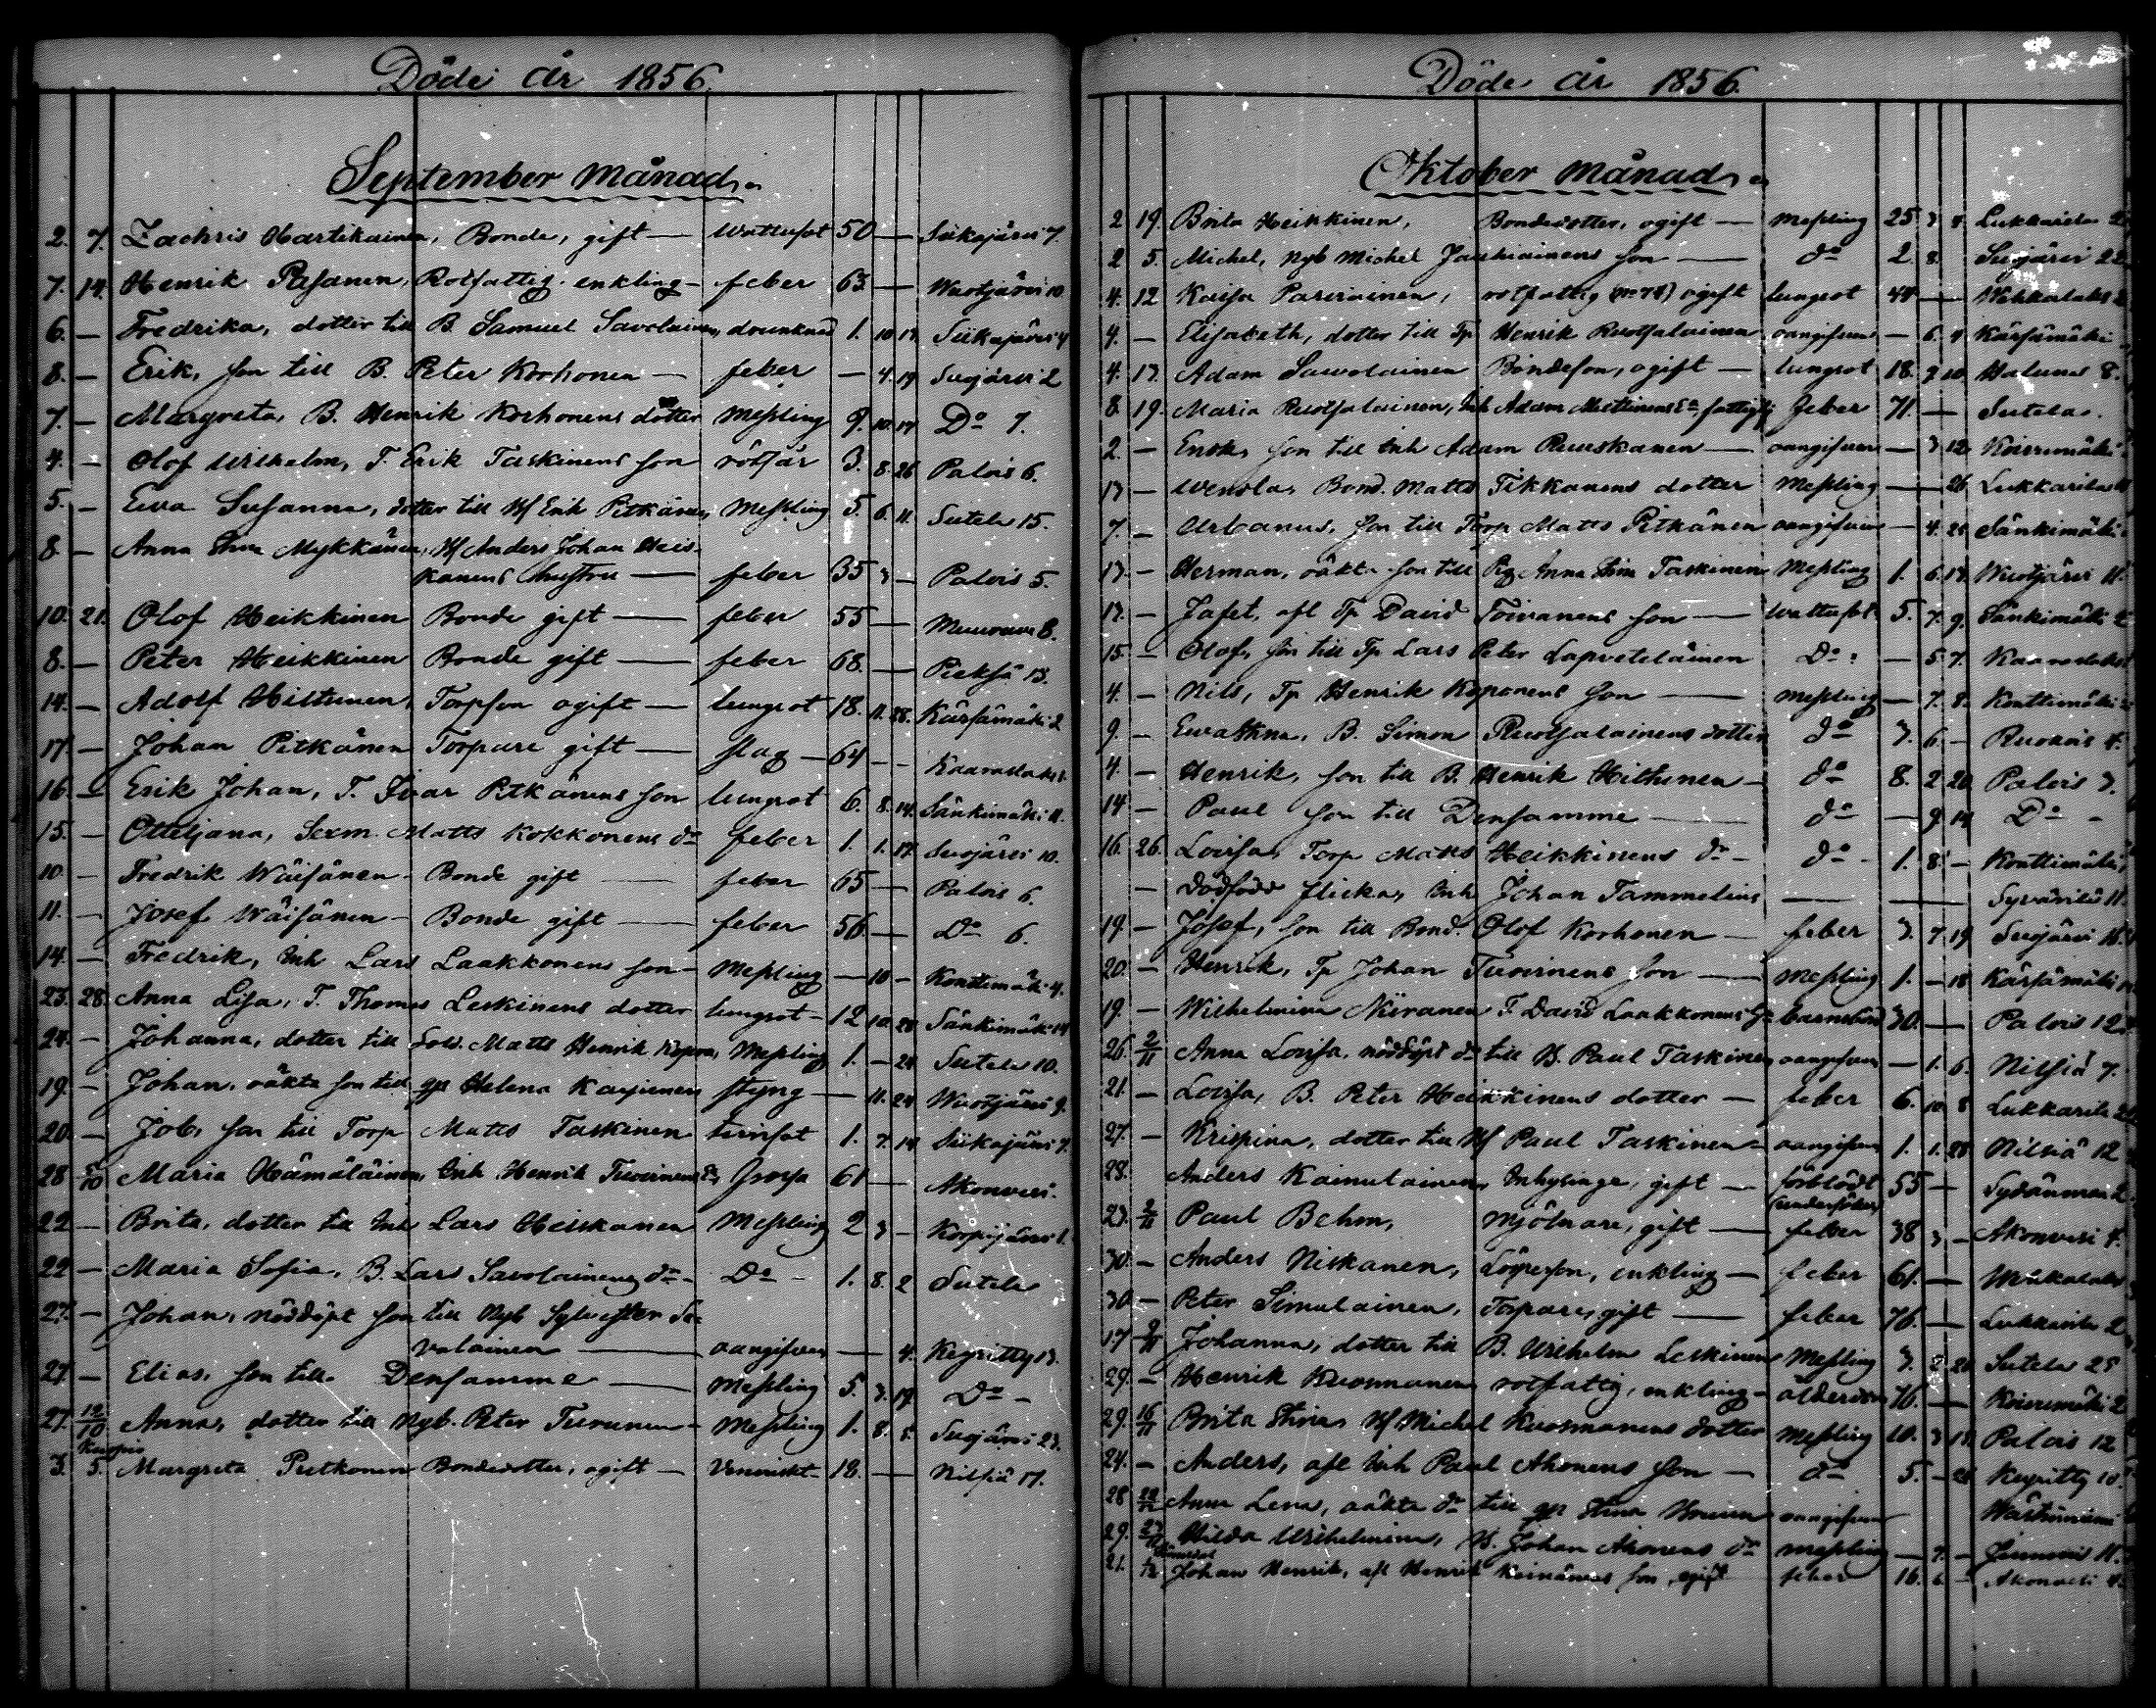 Döde år 1856.
September Månad.
2. 7. Zachris Hartikainen, Bonde, gift — wattusot 50 — Siikajärvi 7.
7. 14. Henrik Pesanen, Rotfattig enkling — feber 63 — Wuotjärvi 10
6. — Fredrika, dotter till B. Samuel Savolainen, drunknad 1. 10 17 Siikajärvi 4
8. — Erik, son till B. Peter Korhonen — feber — 4. 19 Suojärvi 2
7. — Margreta, B. Henrik Korhonens dotter Messling 9. 10. 17 Do 7.
4. — Olof Wilhelm, T. Erik Taskinens son rötsår 3. 8. 26 Palois 6.
5. — Ewa Susanna, dotter till Hf Erik Pitkänen, Messling 5. 6. 11. Sutela 15.
8 — Anna Stina Mykkänen, Hf Anders Johan Heis-
kanens hustru — feber 35 3 — Palois 5.
10. 21. Olof Heikkinen Bonde gift — feber 55 — Muuruvesi 8.
8. — Peter Heikkinen Bonde gift — feber 68. — Pieksä 13.
14. — Adolf Hiltunen, Torpson ogift — lungsot 18. 11. 28. Kärsämäki 2
17 — Johan Pitkänen Torpare gift — slag — 64 — — Kaaraslaks
16. — Erik Johan, T. Ivar Pitkänens son lungsot 6. 8. 14. Sänkimäki 11.
15. — Otteljana, Sexm. Matts Kokkonens dr feber 1. 1. 17. Suojärvi 10.
10 — Fredrik Wäisänen — Bonde gift — feber 65 — Palois 6.
11. — Josef Wäisänen — Bonde gift — feber 56 — Do 6.
14. — Fredrik, Inh Lars Laakkonens son — Messling — 10 — Konttimäki 4.
23. 28. Anna Lisa, T. Thomas Leskinens dotter lungsot — 12 10. 28 Sänkimäki 14
24. — Johanna, dotter till Sold. Matts Henrik Koponen, Messling 1. — 24 Sutela 10.
19. — Johan, oäkta son till gp Helena Karjunen styng — 11. 24 Wuotjärvi 9.
20. — Job, son till Torp Matts Taskinen tvinsot 1. 7. 14 Siikajärvi 7.
28 5/10 Maria Hämäläinen, Inh Henrik Tuovinens E. frossa 61 — Akonvesi.
22 — Brita, dotter till Inh Lars Heiskanen Messling 2 3 — Korpijärvi 1.
22 — Maria Sofia, B. Lars Savolainens dr — Do — 1. 8. 2 Sutela
27. — Johan, nöddöpt son till Nyb Sylvester Sa-
volainen — oangifven — 4. Keyritty 13.
27. — Elias, son till Densamme — Messling 5. 3. 19 Do —
27. 12/10 Anna, dotter till Nyb. Peter Turunen — Messling 1. 8. 5. Suojärvi 23.
Kuopio
3. 5. Margreta Putkonen Bondedotter, ogift — Venerisk — 18. — Nilsiä 17.
Döde år 1856.
Oktober Månad.
2 19. Brita Heikkinen, Bondedotter, ogift — Messling 25. 3 4. Lukkarila
2 5. Michel, Nyb Michel Jauhiainens son — do 2. 8. Suojärvi 22
4. 12 Kaisa Parviainen, rotfattig (No 78) ogift lungsot 44 —
4. — Elisabeth, dotter till Tp Henrik Ruotsalainen oangifven — 6. 4 Kärsämäki
4. 13. Adam Sawolainen Bondeson, ogift — lungsot 18. 9 10. Haluna 8.
8. 19. Maria Ruotsalainen, Inh Adam Miettinens Ea, fattighj. feber 71. — Sutela.
2 — Enok, son till Inh Adam Ruuskanen — oangifven — 3 12. Koivumäki
13 — Wendla, Bond. Matts Tikkanens dotter Messling — 26 Lukkarila
7. — Urbanus, son till Torp Matts Pitkänen oangifven — 4. 25 Sänkimäki
13. — Herman, oäkta son till Pig Anna Stina Taskinen Messling 1. 6. 13. Wuotjärvi 11.
13. — Jafet, afl Tp David Toivanens son — wattusot. 5. 7. 9. Sänkimäki 2
15. — Olof, son till Tp Lars Peter Lapveteläinen Do — 5 7. Kaaraslaks
4. — Nils, Tp Henrik Koponens son — messling — 7. 8. Konttimäki
9. — Ewa Stina, B. Simon Ruotsalainens dotter do 3. 6. — Ruokois 4.
4. — Henrik, son till B. Henrik Hiltunen — do 8. 2 20 Palois 3.
14 — Paul son till Densamme — do — 9 14 Do —
16. 26. Lovisa, Torp Matts Heikkinens dr — do — 1. 8. — Konttimäki
— Dödfödd flicka, Inh Johan Tammelins — Syvärilä 11.
19 — Josef, son till Bond. Olof Korhonen — feber 3. 7. 19 Suojärvi 16.
20. — Henrik, Tp Johan Tuovinens son — Messling 1. — 18 Kärsämäki
19. — Wilhelmina Niiranen T David Laakkonens Ha barnsbörd 30. — Palois 12
26. 2/11 Anna Lovisa, nöddöpt dr till B. Paul Taskinen, oangifven — 1. 6. Nilsiä 7.
21. — Lovisa, B. Peter Heikkinens dotter — feber 6. 10. 8 Lukkarila
27. — Krispina, dotter till Hf Paul Taskinen — oangifven 1. 1. 28 Nilsiä 12
28. Anders Kainulainen, Inhysinge, gift — förblödt 55 —
(undersökes)
23. 2/11 Paul Behm, Mjölnare, gift — feber 38 3 — Akonvesi 4.
30. — Anders Niskanen, Lösperson, enkling — feber 61. —
30 — Peter Simulainen, Torpare, gift — feber 76. — Lukkarila 2
17 9/11 Johanna, dotter till B. Wilhelm Leskinen Messling 3. 2. 20 Sutela 25
29. — Henrik Kuosmanen rotfattig, enkling — ålderdom 76. — Koivumäki 2
29. 16/11 Brita Stina, Hf Michel Kuosmanens dotter Messling 10. 3 18. Palois 12
24. — Anders, afl Inh Paul Ahonens son — do 5. — 26 Keyritty 10.
28 Anna Lena, oäkta dr till gp Stina oangifven
29. Hilda Wilhelmina, B. Johan Ahonens dr messling — 7. —
21. Johan Henrik, afl Henrik Keinänens son, ogift feber 16. 6 — Akonvesi 4.